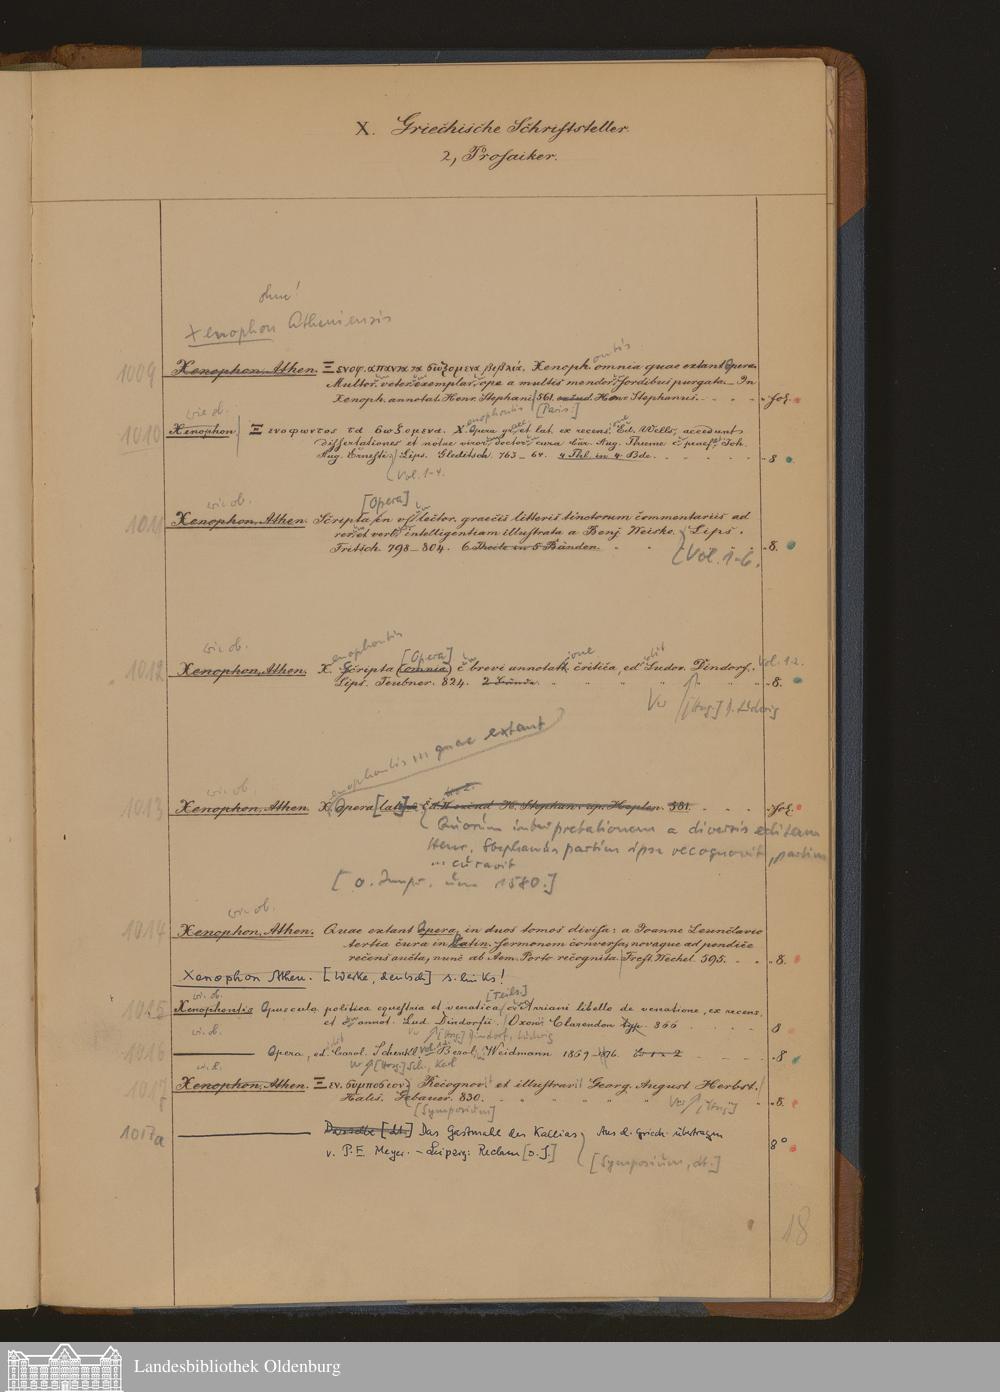 X. Griechische Schriftsteller.
2, Prosaiker.
ohne!
Xenophon Atheniensis
1009 Xenophon, Athen. Ξενοφ. απαντα τα σωζομενα βιβλια. Xenoph. ontis omnia quae extant Opera.
Multor. veter. exemplar. ope a multis mendor. sordibus purgata. In
Xenoph. annotat. Henr. Stephani 561. Henr. Stephanus. fol.
[Paris:]
wie ob.
1010 Xenophon Ξενοφωντος τα σωζομενα. X. enophontis Opera gr. et lat. ex recens. Ed. Wells, accedunt
dissertationes et notae viror. doctor. cura Car. Aug. Thieme c. praef. Joh.
Aug. Ernesti. Lips. Gleditsch. 763-64. 4 Thl. in 4 Bde. 8
Vol. 1-4.
wie ob. [Opera]
1011 Xenophon, Athen. Scripta in usl. lector. graecis litteris tinctorum commentariis ad
rer. et verb. intelligentiam illustrata a Benj. Weiske. Lips.
Fritsch. 798-804. 6 Theile in 5 Bänden. 8.
Vol. 1-6.
wie ob. enophontis [Opera] ione
1012 Xenophon, Athen. X. Scripta (omnia) c. brevi annotat. critica, ed. Ludov. Dindorf. Vol. 1-2.
Lips. Teubner. 824. 2 Bände. 8.
Vw [Hrsg.] D. Ludwig
enophontis ... quae extant
wie ob.
1013 Xenophon, Athen. X. Opera [lat.] H. Stephan. 581. fol.
Quorum interpretationem a diversis editam
Henr. Stephanus partim ipse recognovit, partim
... curavit
[o. Impr. um 1580.]
wie ob.
1014 Xenophon, Athen. Quae extant Opera, in duos tomos divisa: a Joanne Leunclavio
tertia cura in Latin. sermonem conversa, novaque ad pendice
recens aucta, nunc ab Aem. Porto recognita. Frcft. Wechel. 595. 8.
Xenophon Athen. [Werke, deutsch] s. links!
wie ob. [Teils.]
1015 Xenophontis Opuscula politica equestria et venatica c. Arriani libello de venatione, ex recens.
et c. annot. Lud. Dindorfii. Oxonii Clarendon typ. 866 8
wie ob. Vw [Hrsg.] Dindorf, Ludwig
1016 Opera, ed. Carol. Schenkl Vol. 1. 2 Berol. Weidmann 1869-1876. 8
w. ob. Vw [Hrsg.] Sch., Karl
1017 Xenophon, Athen. Ξεν. συμποσιον. Recognovit et illustravit Georg. August Herbst.
Halis. Gebauer. 830. 8.
[Symposium] Vw [Hrsg.]
1017a Dasselbe [dt.] Das Gastmahl des Kallias. Aus d. Griech. übertragen 8°
v. P. E. Meyer. - Leipzig: Reclam [o. J.]
[Symposium, dt.]
18
Landesbibliothek Oldenburg